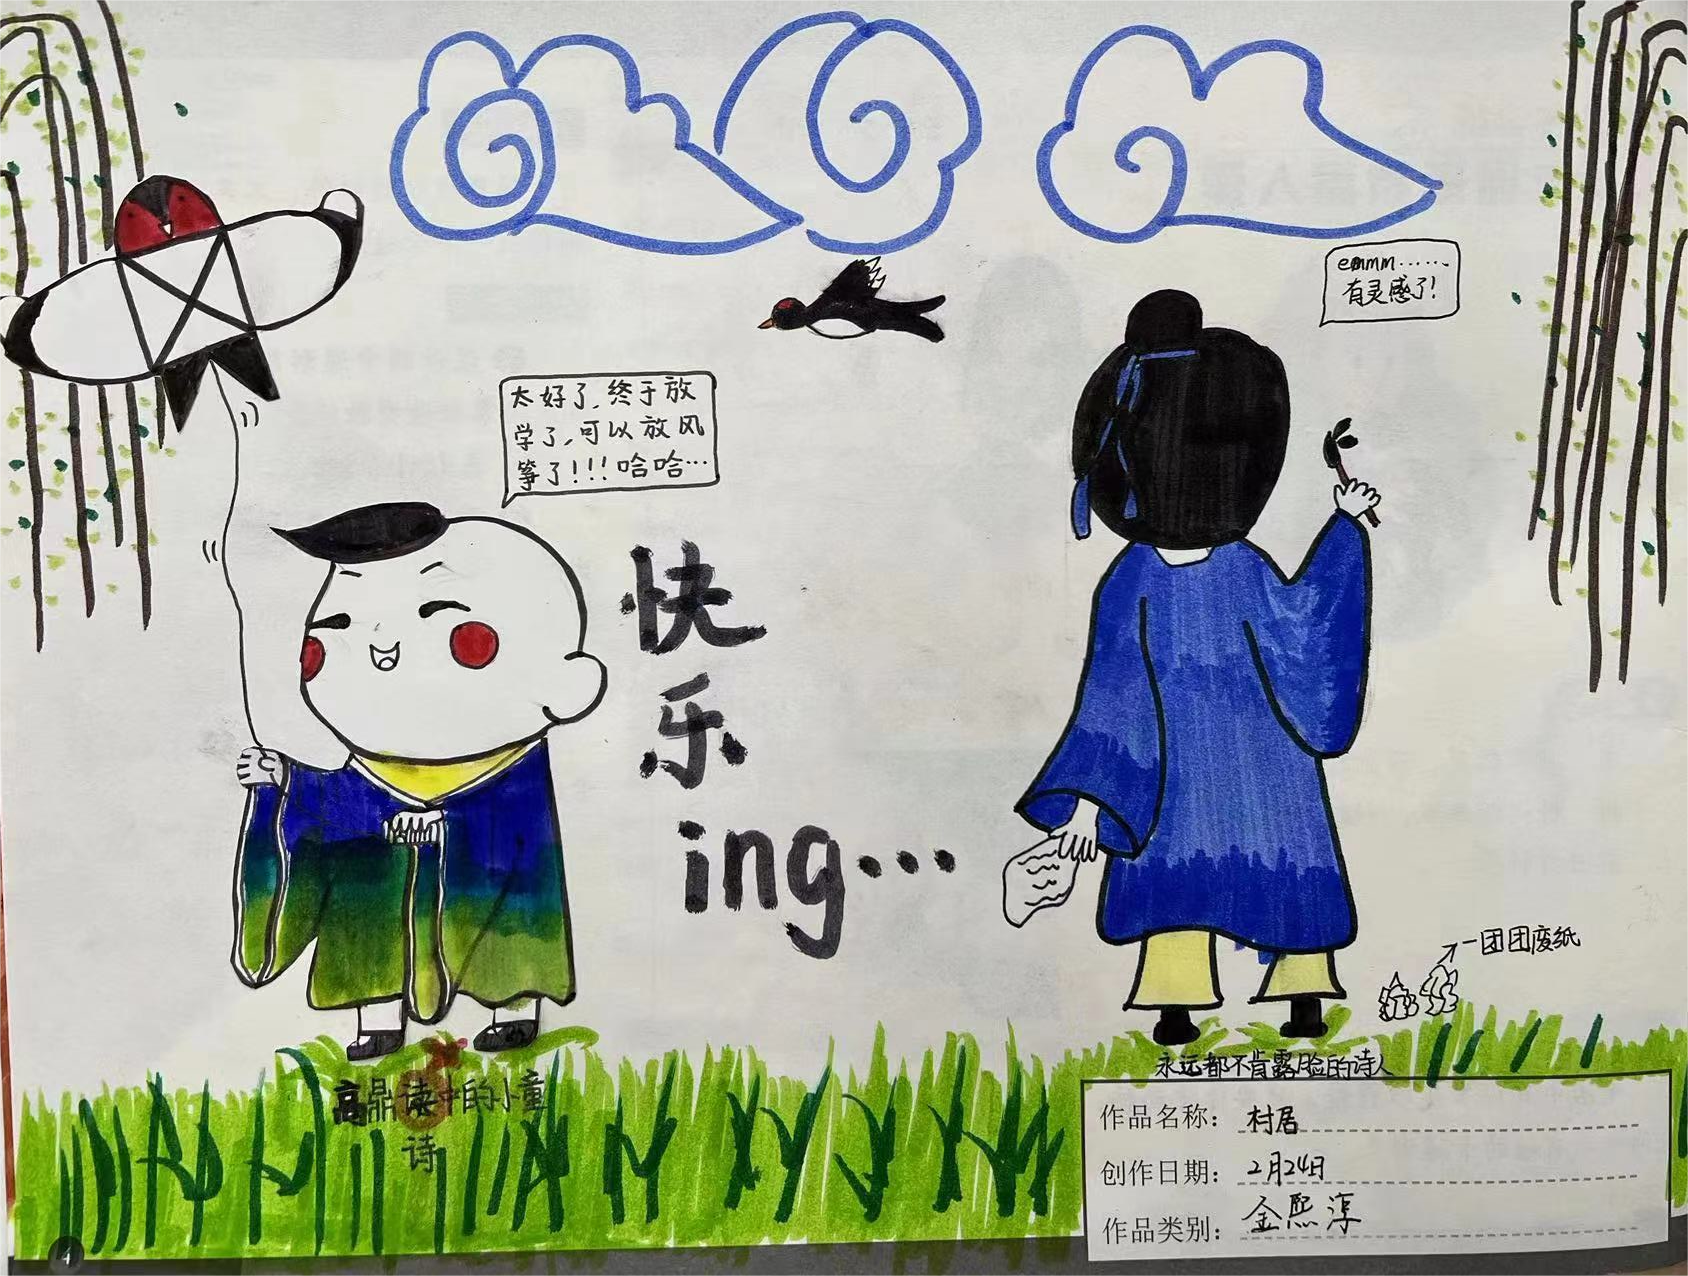 emmm……
有灵感了!
太好了,终于放
学了,可以放风
筝了!!!哈哈…
快
乐
ing…
一团团废纸
永远都不肯露脸的诗人
高鼎读中的小童
诗
作品名称: 村居
创作日期: 2月24日
作品类别: 金熙淳
4